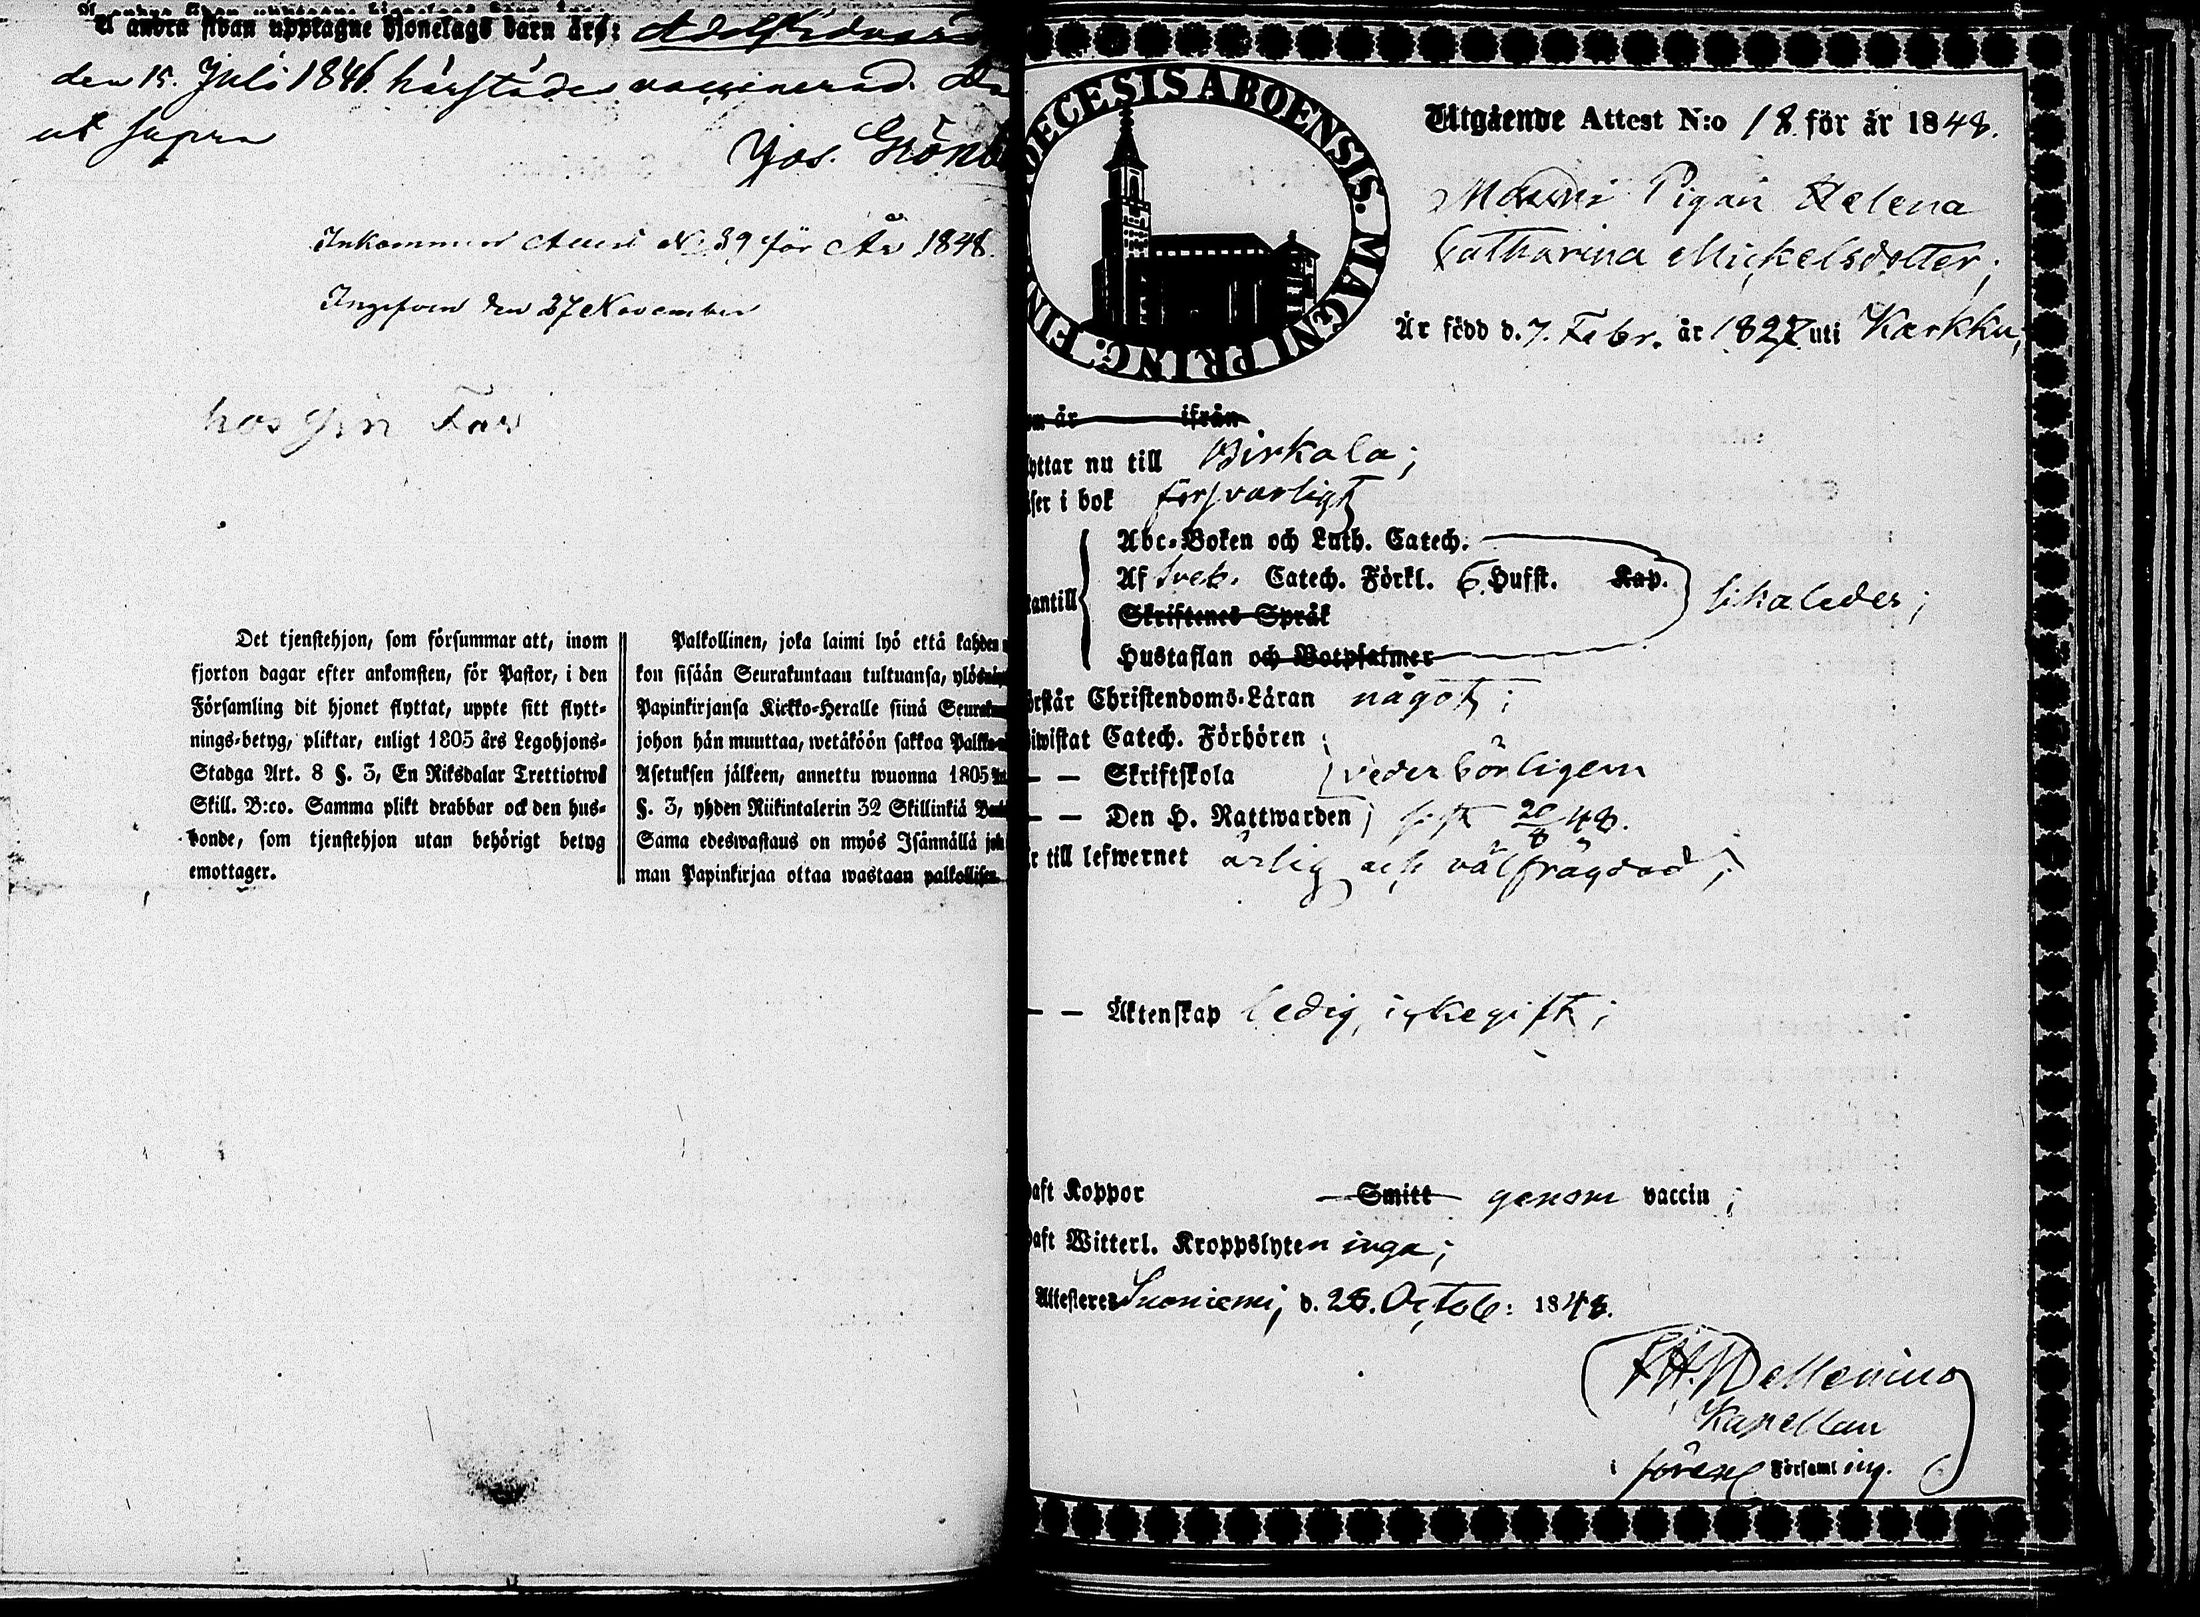 å andra sidan upptagne hjonelags barn äro: Adolf Edvard
den 15. Juli 1846. härstädes vaccinerad.
ut supra
Jos. Grönb
Inkommen Attest N. 39 för År 1848.
Ingifven den 27 November
hos sin Far
Det tjenstehjon, som försummar att, inom
fjorton dagar efter ankomsten, för Pastor, i den
Församling dit hjonet flyttat, uppte sitt flytt-
nings-betyg, pliktar, enligt 1805 års Legohjons-
Stadga Art. 8 §. 3, En Riksdalar Trettiotwå
Skill. B:co. Samma plikt drabbar ock den hus-
bonde, som tjenstehjon utan behörigt betyg
emottager.
Palkollinen, joka laimi lyö että kahden
kon sisään Seurakuntaan tultuansa, ylös
Papinkirjansa Kirkko-Heralle siinä Seurakun
johon hän muuttaa, wetäköön sakkoa Palkka
Asetuksen jälkeen, annettu wuonna 1805
§. 3, yhden Riikintalerin 32 Skillinkiä
Sama edeswastaus on myös Isännällä jok
man Papinkirjaa ottaa wastaan palkollisen
DECESIS ABOENSIS. MAGNI PRINC. FIN
Utgående Attest N:o 18. för år 1848.
Pigan Helena
Catharina Mickelsdotter;
Är född d. 7. Febr. år 1827 uti Karkku;
om är ifrån
yttar nu till Birkala;
äser i bok försvarligt
Abc-Boken och Luth. Catech.
Af Sveb. Catech. Förkl. 6. Hufst. Kap.
tantill likaledes;
Skriftenes Språk
Hustaflan och Botpsalmer
örstår Christendoms-Läran något;
iwistat Catech. Förhören
— — Skriftskola vederbörligen
— — Den H. Nattwarden; sist 20/8 48.
r till lefwernet ärlig och välfrägdad;
— — Äktenskap ledig, ickegift;
haft Koppor Smitt genom vaccin;
haft Witterl. Kroppslyten inga;
Attesteres Suoniemi, d. 28. Octob: 1848.
Kapellan
i fören. Församling.